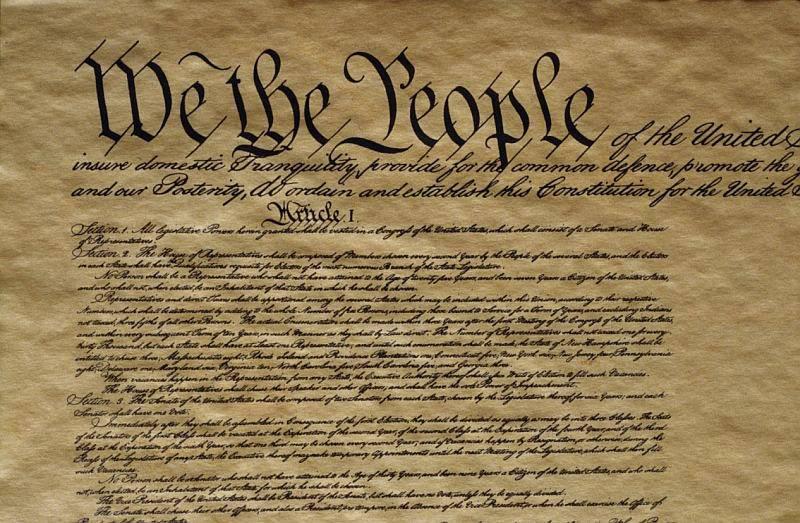 We the People of the United S
insure domestic Tranquility, provide for the common defence, promote the g
and our Posterity, do ordain and establish this Constitution for the United S
Article. I.
Section. 1. All legislative Powers herein granted shall be vested in a Congress of the United States, which shall consist of a Senate and House
of Representatives.
Section. 2. The House of Representatives shall be composed of Members chosen every second Year by the People of the several States, and the Electors
in each State shall have the Qualifications requisite for Electors of the most numerous Branch of the State Legislature.
No Person shall be a Representative who shall not have attained to the Age of twenty five Years, and been seven Years a Citizen of the United States,
and who shall not, when elected, be an Inhabitant of that State in which he shall be chosen.
Representatives and direct Taxes shall be apportioned among the several States which may be included within this Union, according to their respective
Numbers, which shall be determined by adding to the whole Number of free Persons, including those bound to Service for a Term of Years, and excluding Indians
not taxed, three fifths of all other Persons. The actual Enumeration shall be made within three Years after the first Meeting of the Congress of the United States,
and within every subsequent Term of ten Years, in such Manner as they shall by Law direct. The Number of Representatives shall not exceed one for every
thirty Thousand, but each State shall have at Least one Representative; and until such enumeration shall be made, the State of New Hampshire shall be
entitled to chuse three, Massachusetts eight, Rhode Island and Providence Plantations one, Connecticut five, New York six, New Jersey four, Pennsylvania
eight, Delaware one, Maryland six, Virginia ten, North Carolina five, South Carolina five, and Georgia three.
When vacancies happen in the Representation from any State, the Executive Authority thereof shall issue Writs of Election to fill such Vacancies.
The House of Representatives shall chuse their Speaker and other Officers; and shall have the sole Power of Impeachment.
Section. 3. The Senate of the United States shall be composed of two Senators from each State, chosen by the Legislature thereof, for six Years; and each
Senator shall have one Vote.
Immediately after they shall be assembled in Consequence of the first Election, they shall be divided as equally as may be into three Classes. The Seats
of the Senators of the first Class shall be vacated at the Expiration of the second Year, of the second Class at the Expiration of the fourth Year, and of the third
Class at the Expiration of the sixth Year, so that one third may be chosen every second Year; and if Vacancies happen by Resignation, or otherwise, during the
Recess of the Legislature of any State, the Executive thereof may make temporary Appointments until the next Meeting of the Legislature, which shall then fill
such Vacancies.
No Person shall be a Senator who shall not have attained to the Age of thirty Years, and been nine Years a Citizen of the United States, and who shall
not, when elected, be an Inhabitant of that State for which he shall be chosen.
The Vice President of the United States shall be President of the Senate, but shall have no Vote, unless they be equally divided.
The Senate shall chuse their other Officers, and also a President pro tempore, in the Absence of the Vice President, or when he shall exercise the Office of